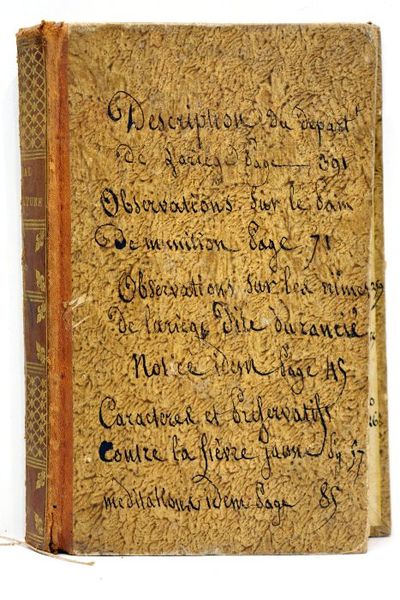 AL
TURE
Description du depart^t
de lariege Page — 391
Observations sur le Pain
De munition Page 71
Observations sur les mines
De lariege Dite du rancié
Notice idem Page 45
Caracteres et Préservatifs
Contre la fièvre jaune pg 57
meditations idem Page 85